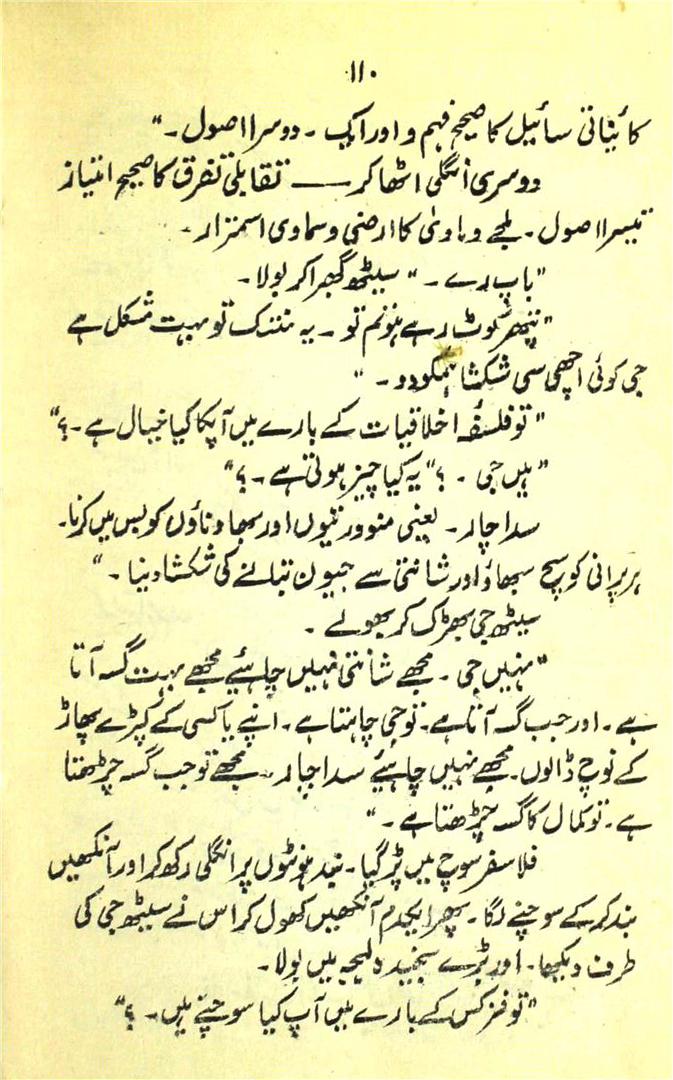 ۱۱۰
کائیناتی سائیل کا صحیح فہم و ادراک ۔ دوسرا اصول ۔"
دوسری اُنگلی اٹھا کر ــــ تقابلی تفرق کا صحیح امتیاز
تیسرا اصول ۔ ملجے و ماویٰ کا ارضی و سماوی استمزاد ۔
"باپ رے ۔" سیٹھ گھبرا کر بولا ۔
"پتھر کوٹ رہے ہو تم تو ۔ یہ منتک تو بہت مشکل ہے
جی کوئی اچھی سی شکشا ہمکو دو ۔"
"تو فلسفۂ اخلاقیات کے بارے میں آپکا کیا خیال ہے ۔؟"
"ہیں جی ۔ ؟" یہ کیا چیز ہوتی ہے ۔؟"
سداچار ۔ یعنی منوورتیوں اور بھاوناؤں کو بس میں کرنا۔
ہر پرانی کو سہج سبھاؤ اور شانتی سے جیون بتانے کی شکشا دینا ۔"
سیٹھ جی بھڑک کر بھولے ۔
"نہیں جی ۔ مجھے شانتی نہیں چاہئیے مجھے بہت گسہ آتا
ہے ۔ اور جب گسہ آتا ہے۔ تو جی چاہتا ہے ۔ اپنے یا کسی کے کپڑے پھاڑ
کے نوچ ڈالوں۔ مجھے نہیں چاہئیے سداچار ۔ مجھے تو جب گسہ چڑھتا
ہے ۔ تو کمال کا گسہ چڑھتا ہے ۔"
فلاسفر سوچ میں پڑ گیا ۔ بند ہونٹوں پر انگلی رکھ کر اور آنکھیں
بند کر کے سوچنے لگا ۔ پھر ایکدم آنکھیں کھول کر اس نے سیٹھ جی کی
طرف دیکھا ۔ اور بڑے سنجیدہ لہجہ میں بولا ۔
"تو فزکس کے بارے میں آپ کیا سوچتے ہیں ۔ ؟"